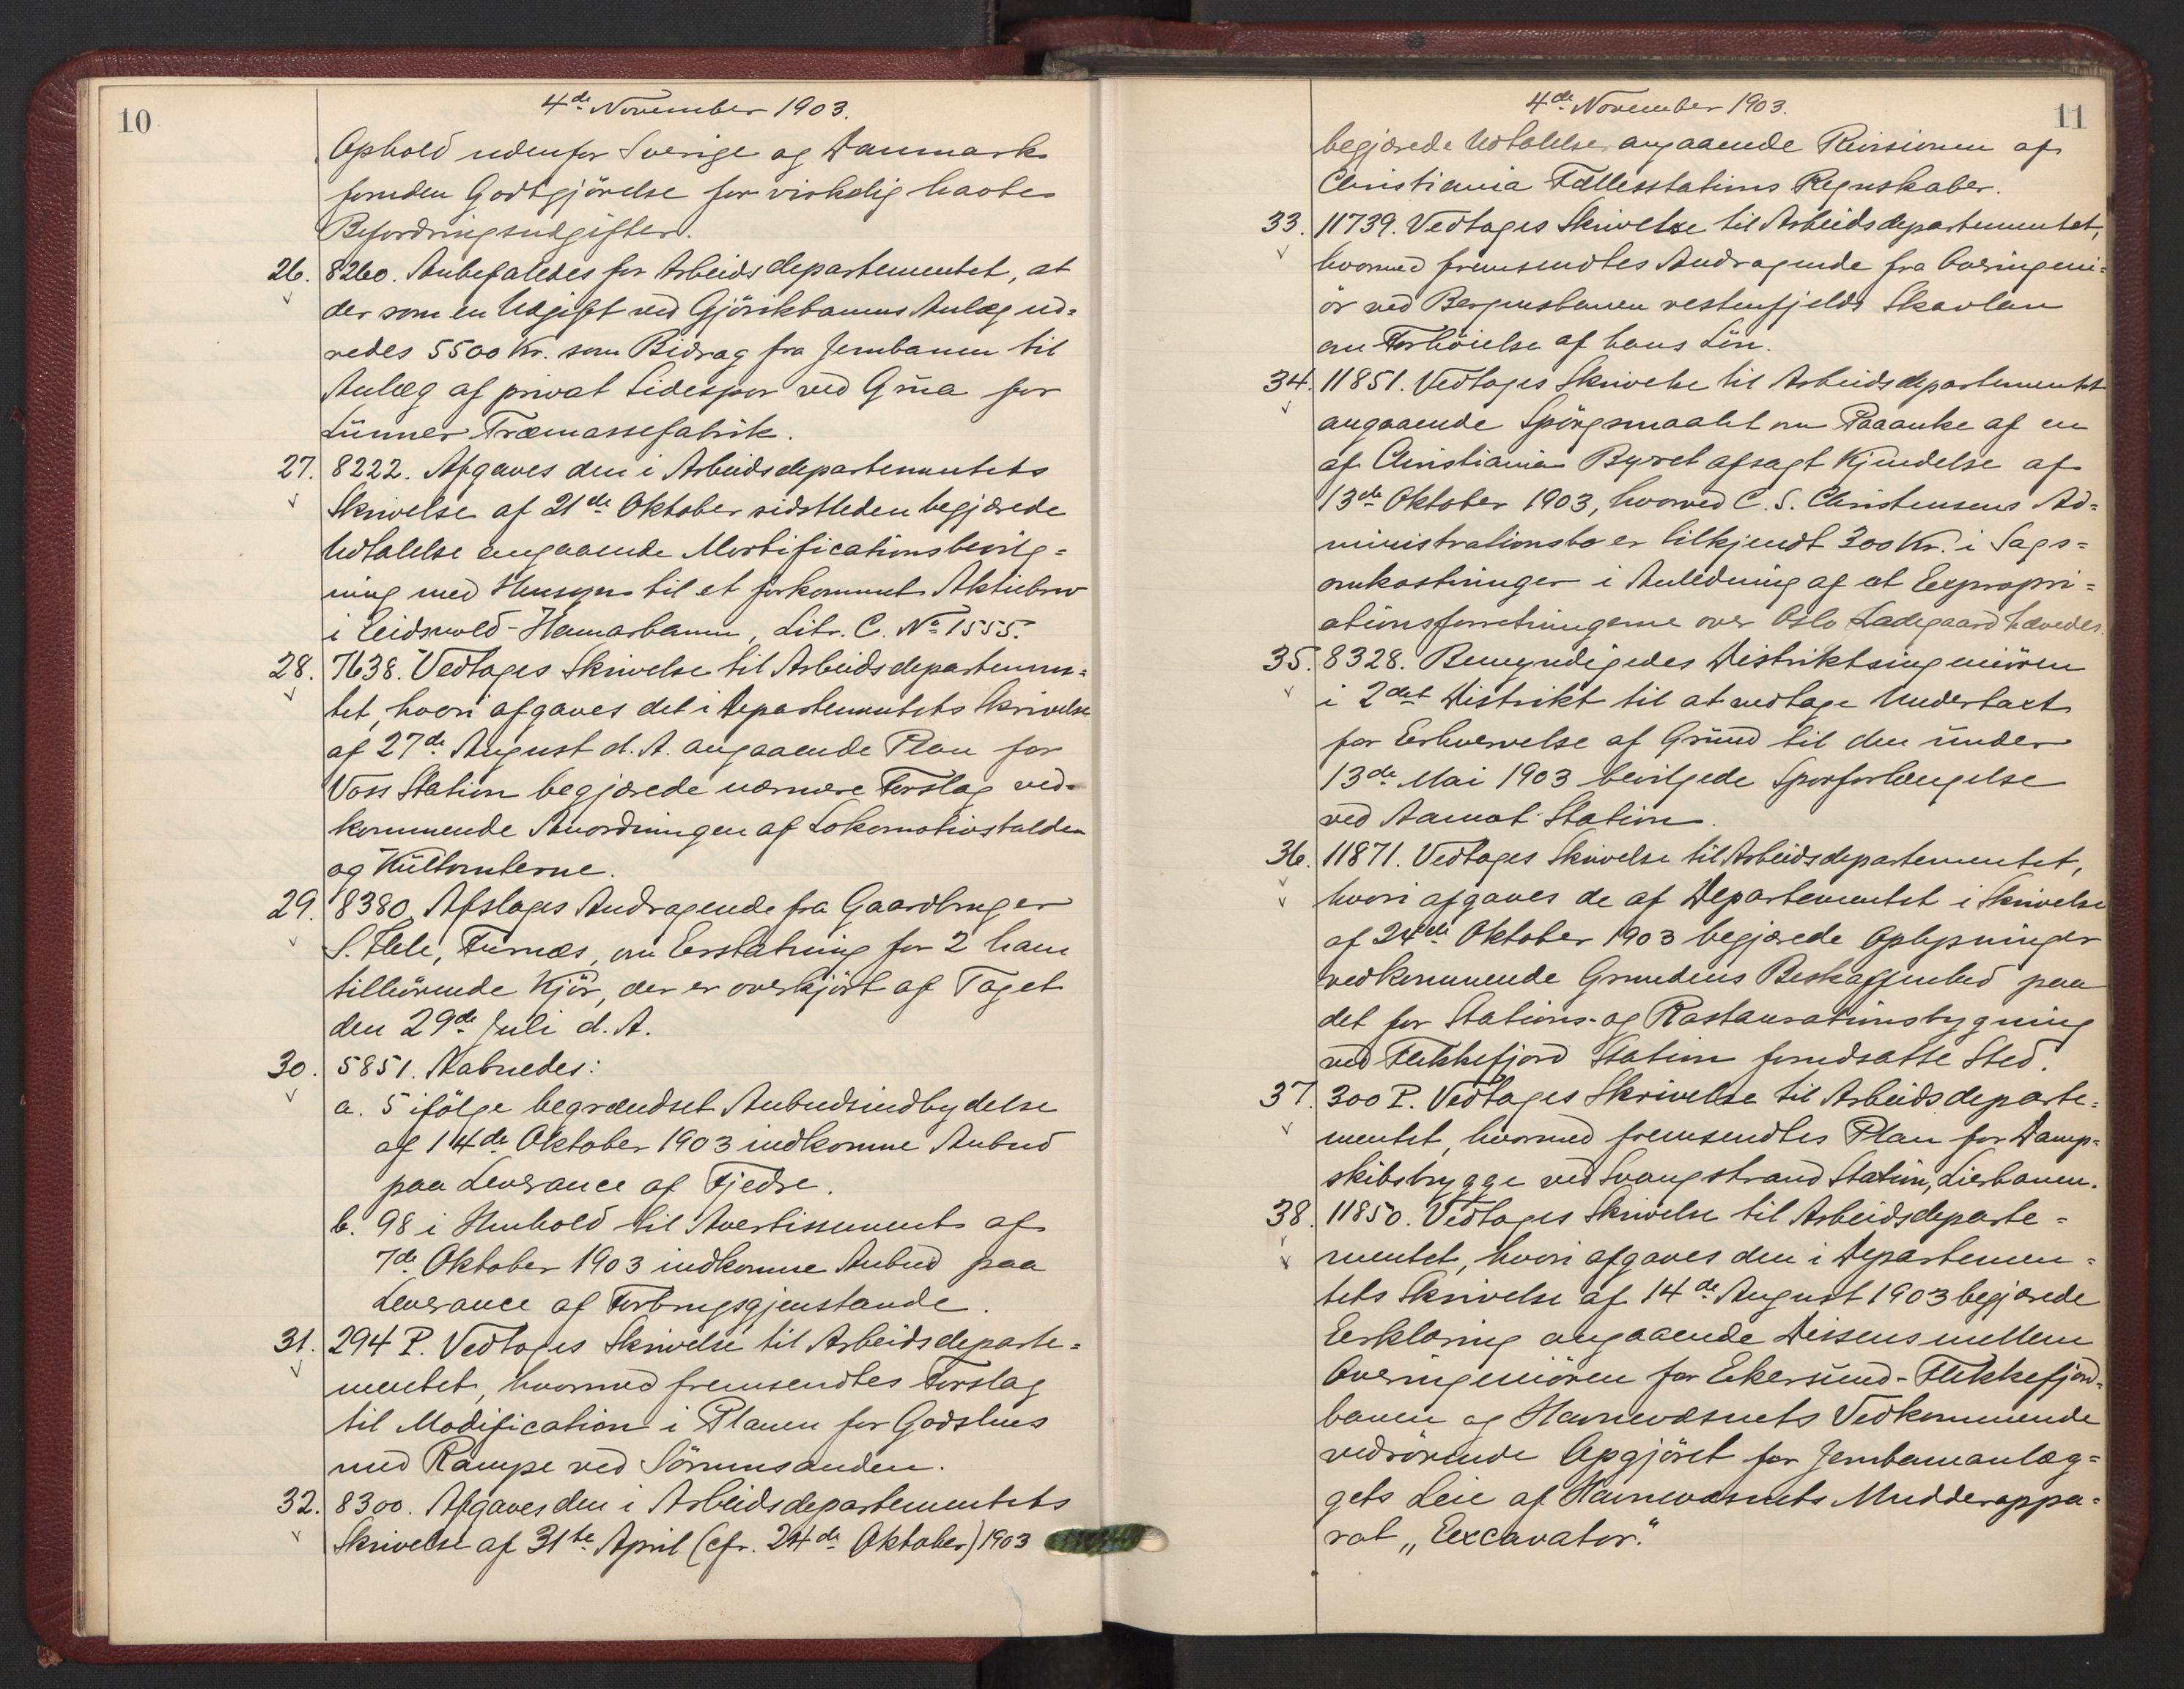 10
4de November 1903.
Ophold udenfor Sverige og Danmark
foruden Godtgjörelse for virkelig havte
Befordringsudgifter.
26. 8260. Anbefaledes for Arbeidsdepartementet, at
der som en Udgift ved Gjövikbanens Anlæg ud=
redes 5500 Kr. som Bidrag fra Jernbanen til
Anlæg af privat Sidespor ved Grua for
Lunner Træmassefabrik.
27. 8222. Afgaves den i Arbeidsdepartementets
Skrivelse af 21de Oktober sidstleden begjærede
Udtalelse angaaende Mortificationsbevilg=
ning med Hensyn til et forkommet Aktiebrev
i Eidsvold-Hamarbanen, Litr. C. No 1555.
28. 7638. Vedtoges Skrivelse til Arbeidsdepartemen=
tet, hvori afgaves det i Departementets Skrivelse
af 27de August d. A. angaaende Plan for
Voss Station begjærede nærmere Forslag ved=
kommende Anordningen af Lokomotivstalden
og Kultomterne.
29. 8380. Afsloges Andragende fra Gaardbruger
S. Hele, Furnæs, om Erstatning for 2 ham
tilhörende Kjör, der er overkjört af Toget
den 29de Juli d. A.
30. 5851. Aabnedes:
a. 5 ifölge begrændset Anbudsindbydelse
af 14de Oktober 1903 indkomne Anbud
paa Leverance af Fjedre.
b. 98 i Henhold til Avertissement af
7de Oktober 1903 indkomne Anbud paa
Leverance af Forbrugsgjenstande.
31. 294 P. Vedtoges Skrivelse til Arbeidsdeparte=
mentet, hvormed fremsendtes Forslag
til Modification i Planen for Godshus
med Rampe ved Sörumsanden.
32. 8300. Afgaves den i Arbeidsdepartementets
Skrivelse af 31te April (cfr. 24de Oktober) 1903
4de November 1903.
11
begjærede Udtalelse angaaende Revisionen af
Christiania Fællesstations Regnskaber.
33. 11739. Vedtoges Skrivelse til Arbeidsdepartementet,
hvormed fremsendtes Andragende fra Overingeni=
ör ved Bergensbanen vestenfjelds Skavlan
om Forhöielse af hans Lön.
34. 11851. Vedtoges Skrivelse til Arbeidsdepartementet
angaaende Spörgsmaalet om Paaanke af en
af Christiania Byret afsagt Kjendelse af
13de Oktober 1903, hvorved C. S. Christensens Ad=
ministrationsbo er tilkjendt 300 Kr. i Sags=
omkostninger i Anledning af at Expropri=
ationsforretningerne over Oslo Ladegaard hævedes.
35. 8328. Bemyndigedes Distriktsingeniören
i 2det Distrikt til at vedtage Undertaxt
for Erhvervelse af Grund til den under
13de Mai 1903 bevilgede Sporforlængelse
ved Aamot Station.
36. 11871. Vedtoges Skrivelse til Arbeidsdepartementet,
hvori afgaves de af Departementet i Skrivelse
af 24de Oktober 1903 begjærede Oplysninger
vedkommende Grundens Beskaffenhed paa
det for Stations- og Restaurationsbygning
ved Flekkefjord Station forudsatte Sted.
37. 300 P. Vedtoges Skrivelse til Arbeidsdeparte=
mentet, hvormed fremsendtes Plan for Damp=
skibsbrygge ved Svangstrand Station, Lierbanen.
38. 11850. Vedtoges Skrivelse til Arbeidsdeparte=
mentet, hvori afgaves den i Departemen=
tets Skrivelse af 14de August 1903 begjærede
Erklæring angaaende Dissens mellem
Overingeniören for Ekersund-Flekkefjord=
banen og Havnevæsnets Vedkommende
vedrörende Opgjöret for Jernbaneanlæg=
gets Leie af Havnevæsnets Mudderappa=
rat „Excavator."